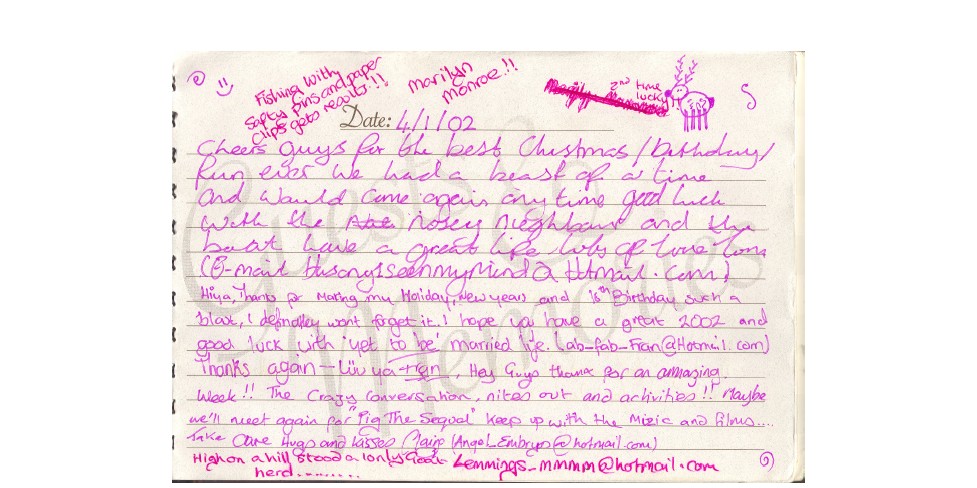 Fishing with
safty pins and paper
clips gets results!!
Marilyn
Monroe!!
2nd time
lucky
Date: 4/1/02
Cheers guys for the best Chistmas/birthday/
fun ever we had a beast of a time
and would come again any time good luck
with the nosey nieghbour and the
boat have a great life lots of love Tom
(E-mail Hasany1seenmymind@Hotmail.com)
Hiya, Thanks for making my Holiday, New years and 16th Birthday such a
blast, I definatley wont forget it. I hope you have a great 2002 and
good luck with 'yet to be' married life. (ab-fab-Fran@Hotmail.com)
Thanks again - Luv ya Fran. Hey Guys thanx for an amazing
week!! The Crazy conversation, nites out and activities!! Maybe
we'll meet again for "Pig The Sequal" keep up with the Mizic and films....
Take Care Hugs and kisses Claire (Angel_Embryo@hotmail.com)
High on a hill stood a lonly Goat Lemmings_mmmm@hotmail.com
herd.........
Guests
Memories